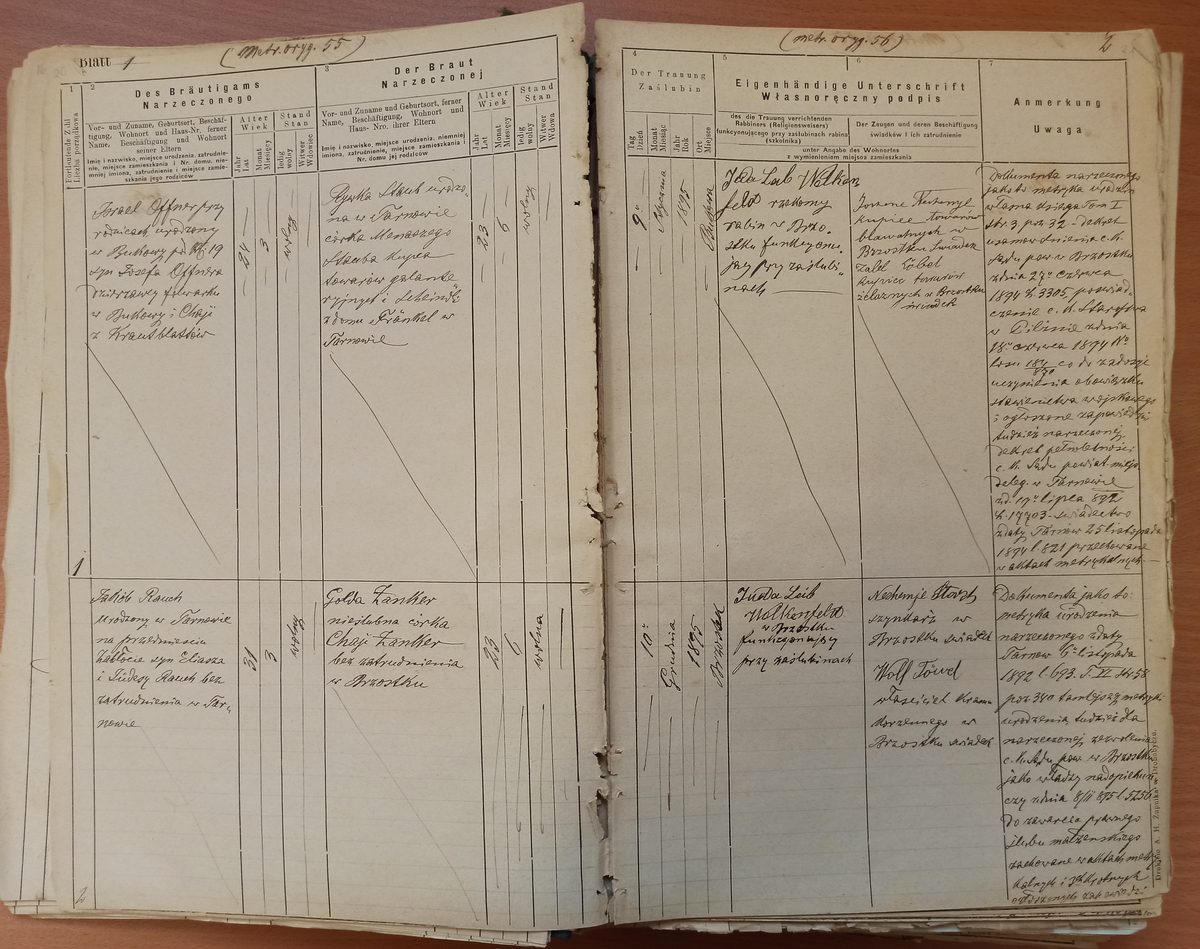 (Metr. oryg. 55)
Blatt 1
1
Fortlaufende Zahl
Liczba porządkowa
2
Des Bräutigams
Narzeczonego
Vor- und Zuname, Geburtsort, Beschäf-
tigung, Wohnort und Haus-Nr. ferner
Name, Beschäftigung und Wohnort
seiner Eltern
Imię i nazwisko, miejsce urodzenia, zatrudnie-
nie, miejsce zamieszkania i Nr. domu, nie-
mniej imiona, zatrudnienie i miejsce zamie-
szkania jego rodziców
Alter
Wiek
Jahr
Lat
Monat
Miesięcy
Stand
Stan
ledig
wolny
Witwer
Wdowiec
3
Der Braut
Narzeczonej
Vor- und Zuname und Geburtsort, ferner
Name, Beschäftigung, Wohnort und
Haus- Nro. ihrer Eltern
Imię i nazwisko, miejsce urodzenia, niemniej
imiona, zatrudnienie, miejsce zamieszkania i
Nr. domu jej rodziców
Alter
Wiek
Jahr
Lat
Monat
Miesięcy
Stand
Stan
ledig
wolny
Witwer
Wdowa
Israel Offner przy
rodzicach urodzony
w Bukowy
syn Josefa Offnera
dzierzawcy folwarku
w Bukowy i Chaji
z Krautblattów
24
3
wolny
Rywka Staub urodzo-
na w Tarnowie
córka Menaszego
Stauba kupca
towarów galante
ryjnych i
z domu Fränkel w
Tarnowie
23
6
wolny
1
Jakób Rauch
urodzony w Tarnowie
na przedmieściu
Zabłocie syn Eliasza
i Rauch bez
zatrudnienia w Tar-
nowie
31
3
wolny
Golda Zanker
nieślubna córka
Chaji Zanker
bez zatrudnienia
w Brzostku
23
6
wolna
2
(metr. oryg. 56)
2
4
Der Trauung
Zaślubin
Tag
Dzień
Monat
Miesiąc
Jahr
Rok
Ort
Miejsce
5
6
Eigenhändige Unterschrift
Własnoręczny podpis
des die Trauung verrichtenden
Rabbiners (Religionsweisers)
funkcyonującego przy zaślubinach rabina
(szkolnika)
Der Zeugen und deren Beschäftigung
świadków i ich zatrudnienie
unter Angabe des Wohnortes
z wymienieniem miejsca zamieszkania
7
Anmerkung
Uwaga
9º
Stycznia
1895
Juda Leib Wolken
feld rzekomy
rabin w Brzo-
stku funkcyonu-
jący przy zaślubi-
nach
kupiec towarów
bławatnych w
Brzostku świadek
Löbel
kupiec towarów
żelaznych w Brzostku
świadek
Dokumenta narzeczonego
jako to metryka urodzin
własna księga Tom I
str. 3 poz. 32 - dekret
usamowolnienia c. k.
Sądu pow. w Brzostku
z dnia 27º Czerwca
1894 L. 3305, poświad-
czenie c. k. Starostwa
w Pilznie z dnia
18º Czerwca 1894 Nº
losu co do zadosyć
uczynienia obowiązku
stawiennictwa wojskowego
i ogłoszone zapowiedzi
tudzież narzeczonej
dekret pełnoletności
c. k. Sądu powiat. miejs.
deleg. w Tarnowie
z d. 19º lipca 892
L. 17703 - świadectwo
z daty Tarnów 25 listopada
1894 l. 821 przechowane
w aktach metrykalnych
10º
Grudnia
1895
Brzostek
Juda Leib
Wolkenfeld
w Brzostku
funkcyonujący
przy zaślubinach
Nechemje
szynkarz w
Brzostku świadek
Wolf
właściciel kramu
korzennego w
Brzostku świadek
Dokumenta jako to:
metryka urodzenia
narzeczonego z daty
Tarnów 6º listopada
1892 l. 693. T. VI str 58
poz 340 tamtejszej metryki
urodzenia, tudzież dla
narzeczonej zezwolenie
c. k. Sądu pow. w Brzostku
jako władzy nadopiekuń
czej z dnia 8/11 895 l. 5256
do zawarcia prawnego
ślubu małżeńskiego
zachowane w aktach metry
kalnych i 3 krotnych
zapowiedzi
Drukiem A. H. Żupnika w Drohobyczu.